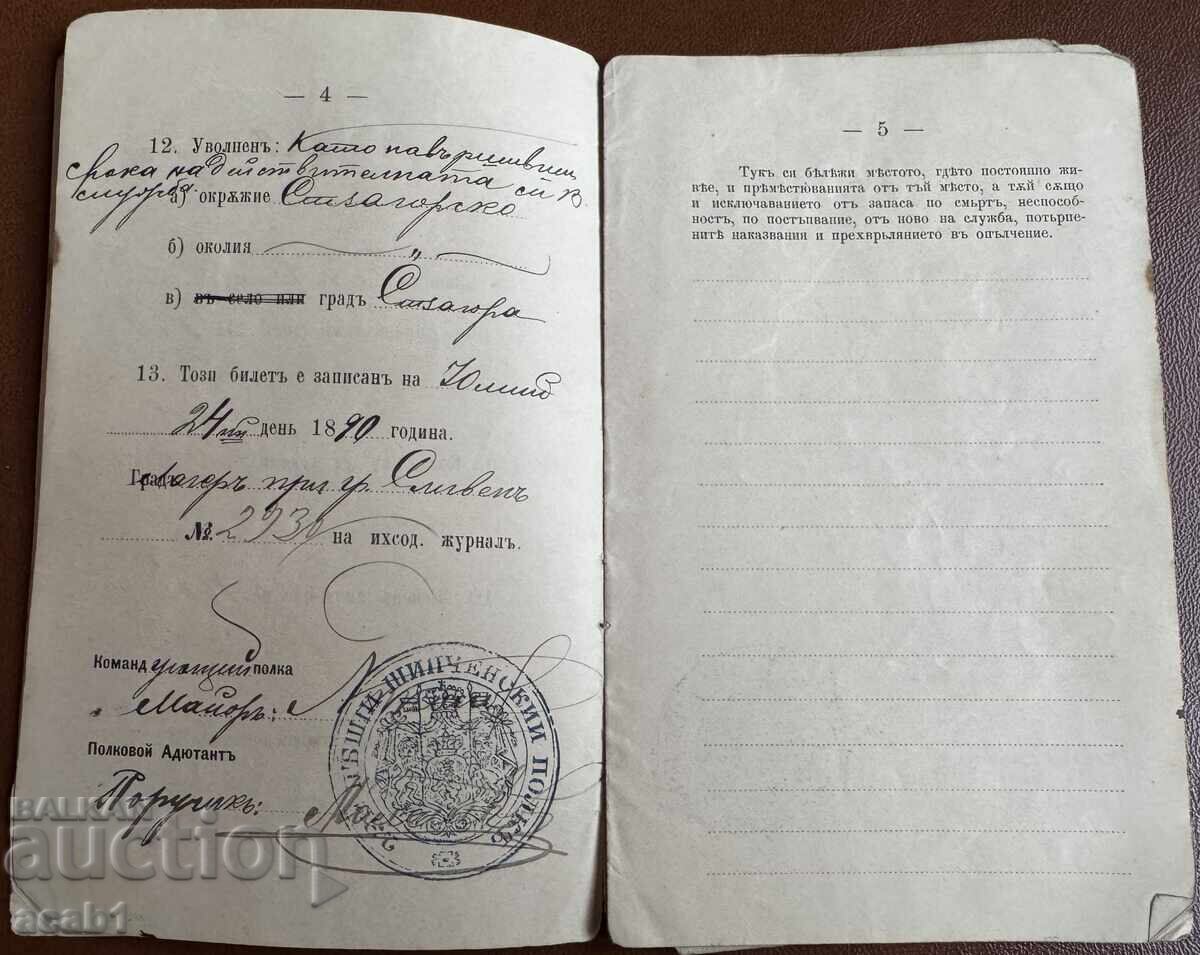 — 4 —
12. Уволненъ: Като навършивш
срока на действителната си в.
служба.
а) окрѫжие Ст Загорско
б) околия „
в) въ село или градъ Ст Загора
13. Този билетъ е записанъ на Юлий
24ий день 1890 година.
Лагеръ при гр. Сливенъ
№ 293 на ихсод. журналъ.
Командующий полка
Майоръ:
Полковой Адютантъ
Поручикъ:
ШИПЧЕНСКИИ ПОЛКЪ
— 5 —
Тукъ си бѣлѣжи мѣстото, гдѣто постоянно жи-
вѣе, и прѣмѣстюванията отъ тъй мѣсто, а тѫй сѫщо
и исключаванието отъ запаса по смърть, неспособ-
ность, по постъпвание, отъ ново на служба, потърпе-
нитѣ наказвания и прехвърлянието въ опълчение.
BALKAN
auction
acab1